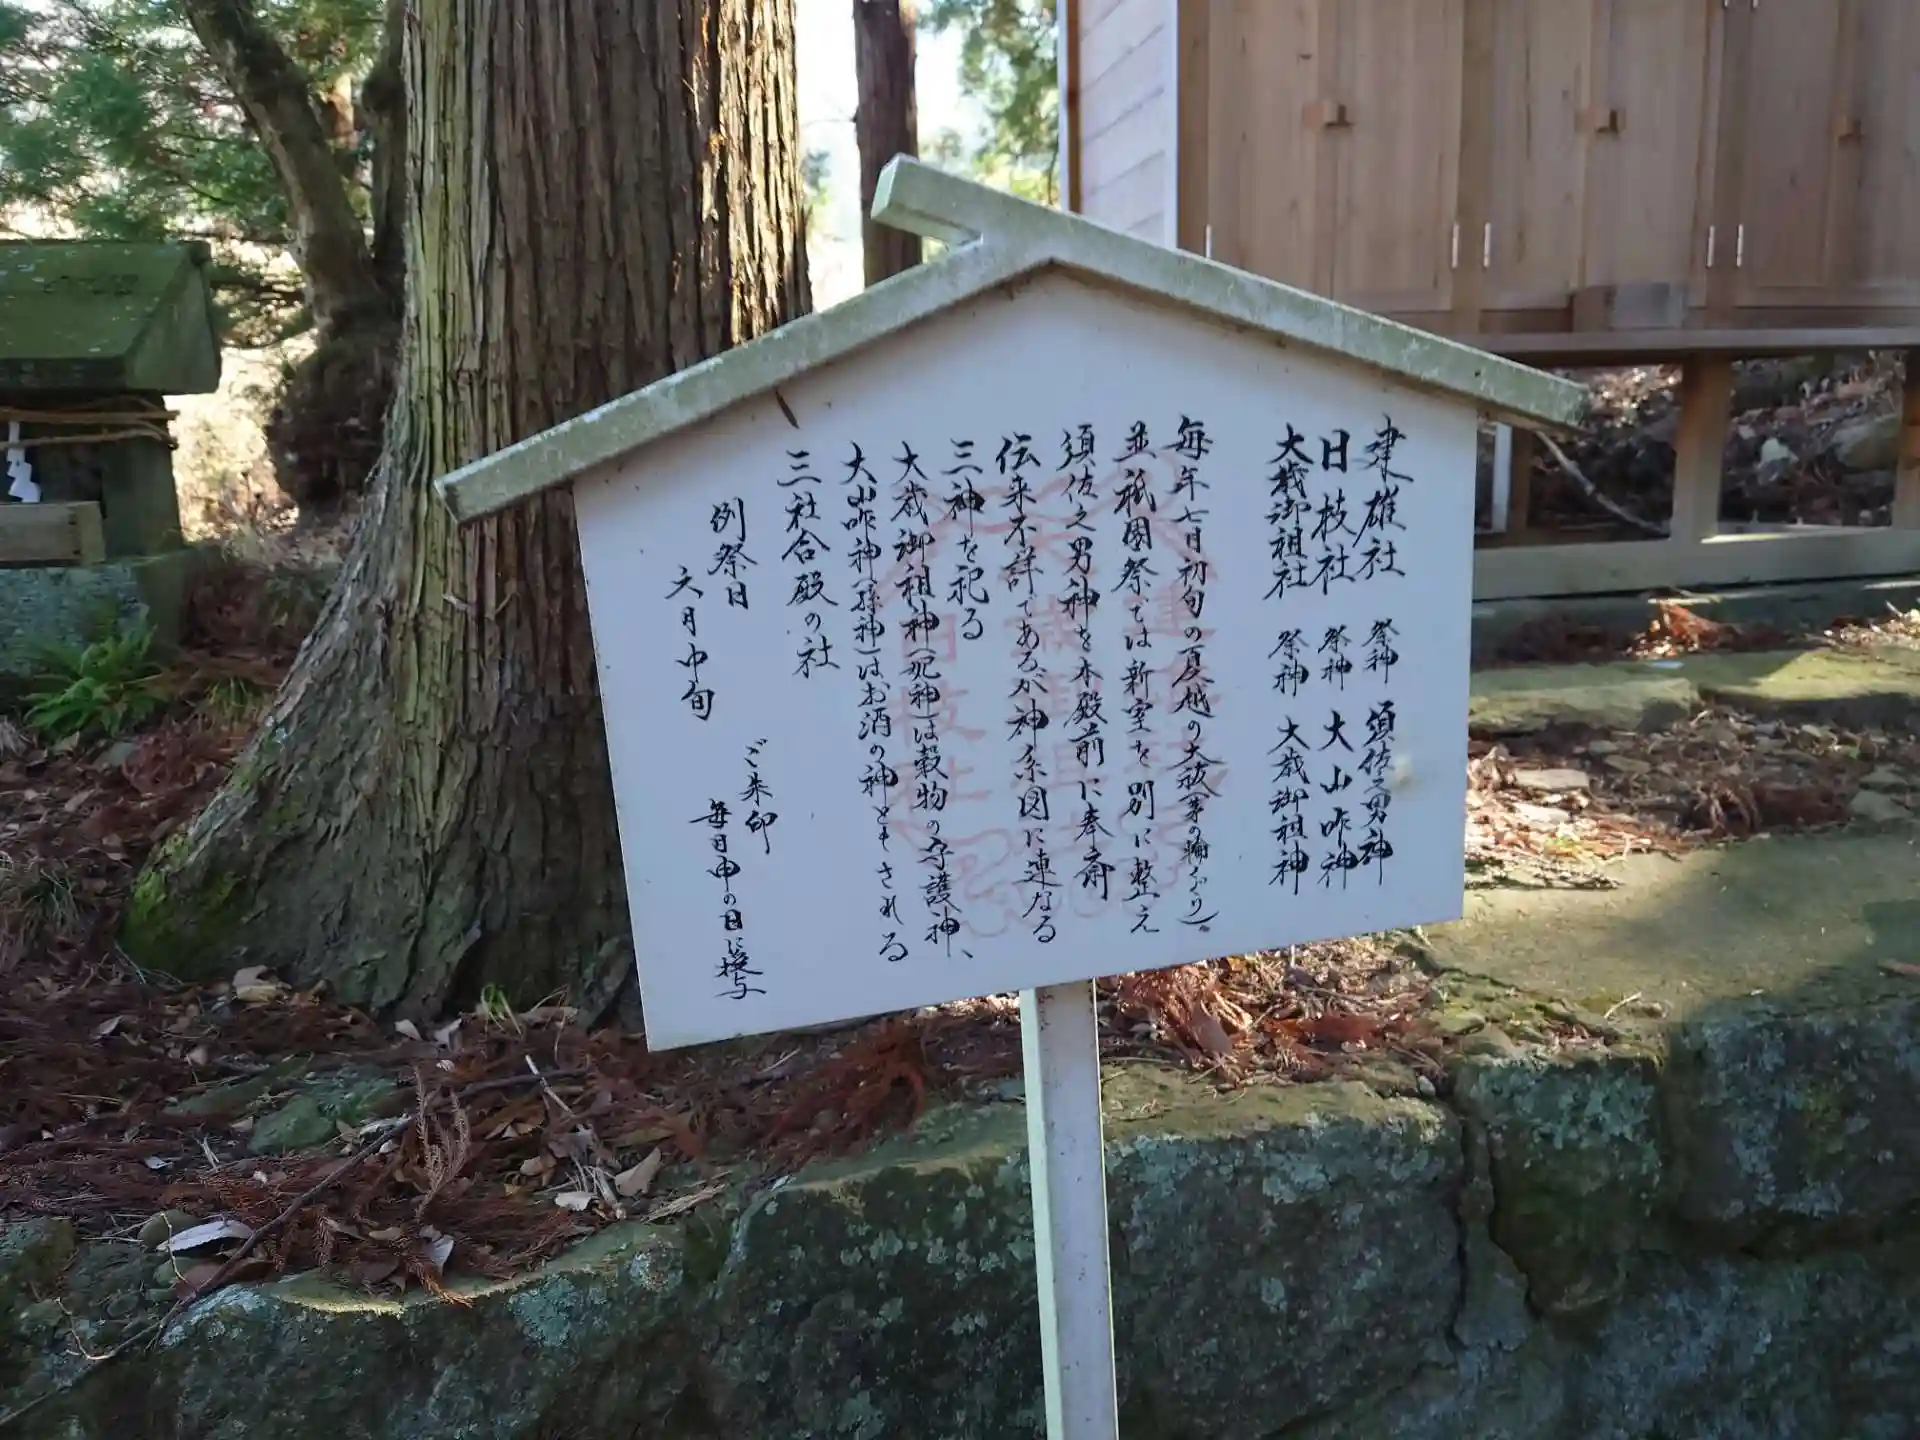 建雄社 祭神 須佐之男神
日枝社 祭神 大山咋神
大歳御祖社 祭神 大歳御祖神
毎年七月初旬の夏越の大祓(茅の輪くぐり)。
並祇園祭では新室を別に整え
須佐之男神を本殿前に奉斎
伝来不詳であるが神系図に連なる
三神を祀る
大歳御祖神(妃神)は穀物の守護神、
大山咋神(孫神)はお酒の神ともされる
三社合殿の社
例祭日
六月中旬
ご朱印
毎日申の日に授与